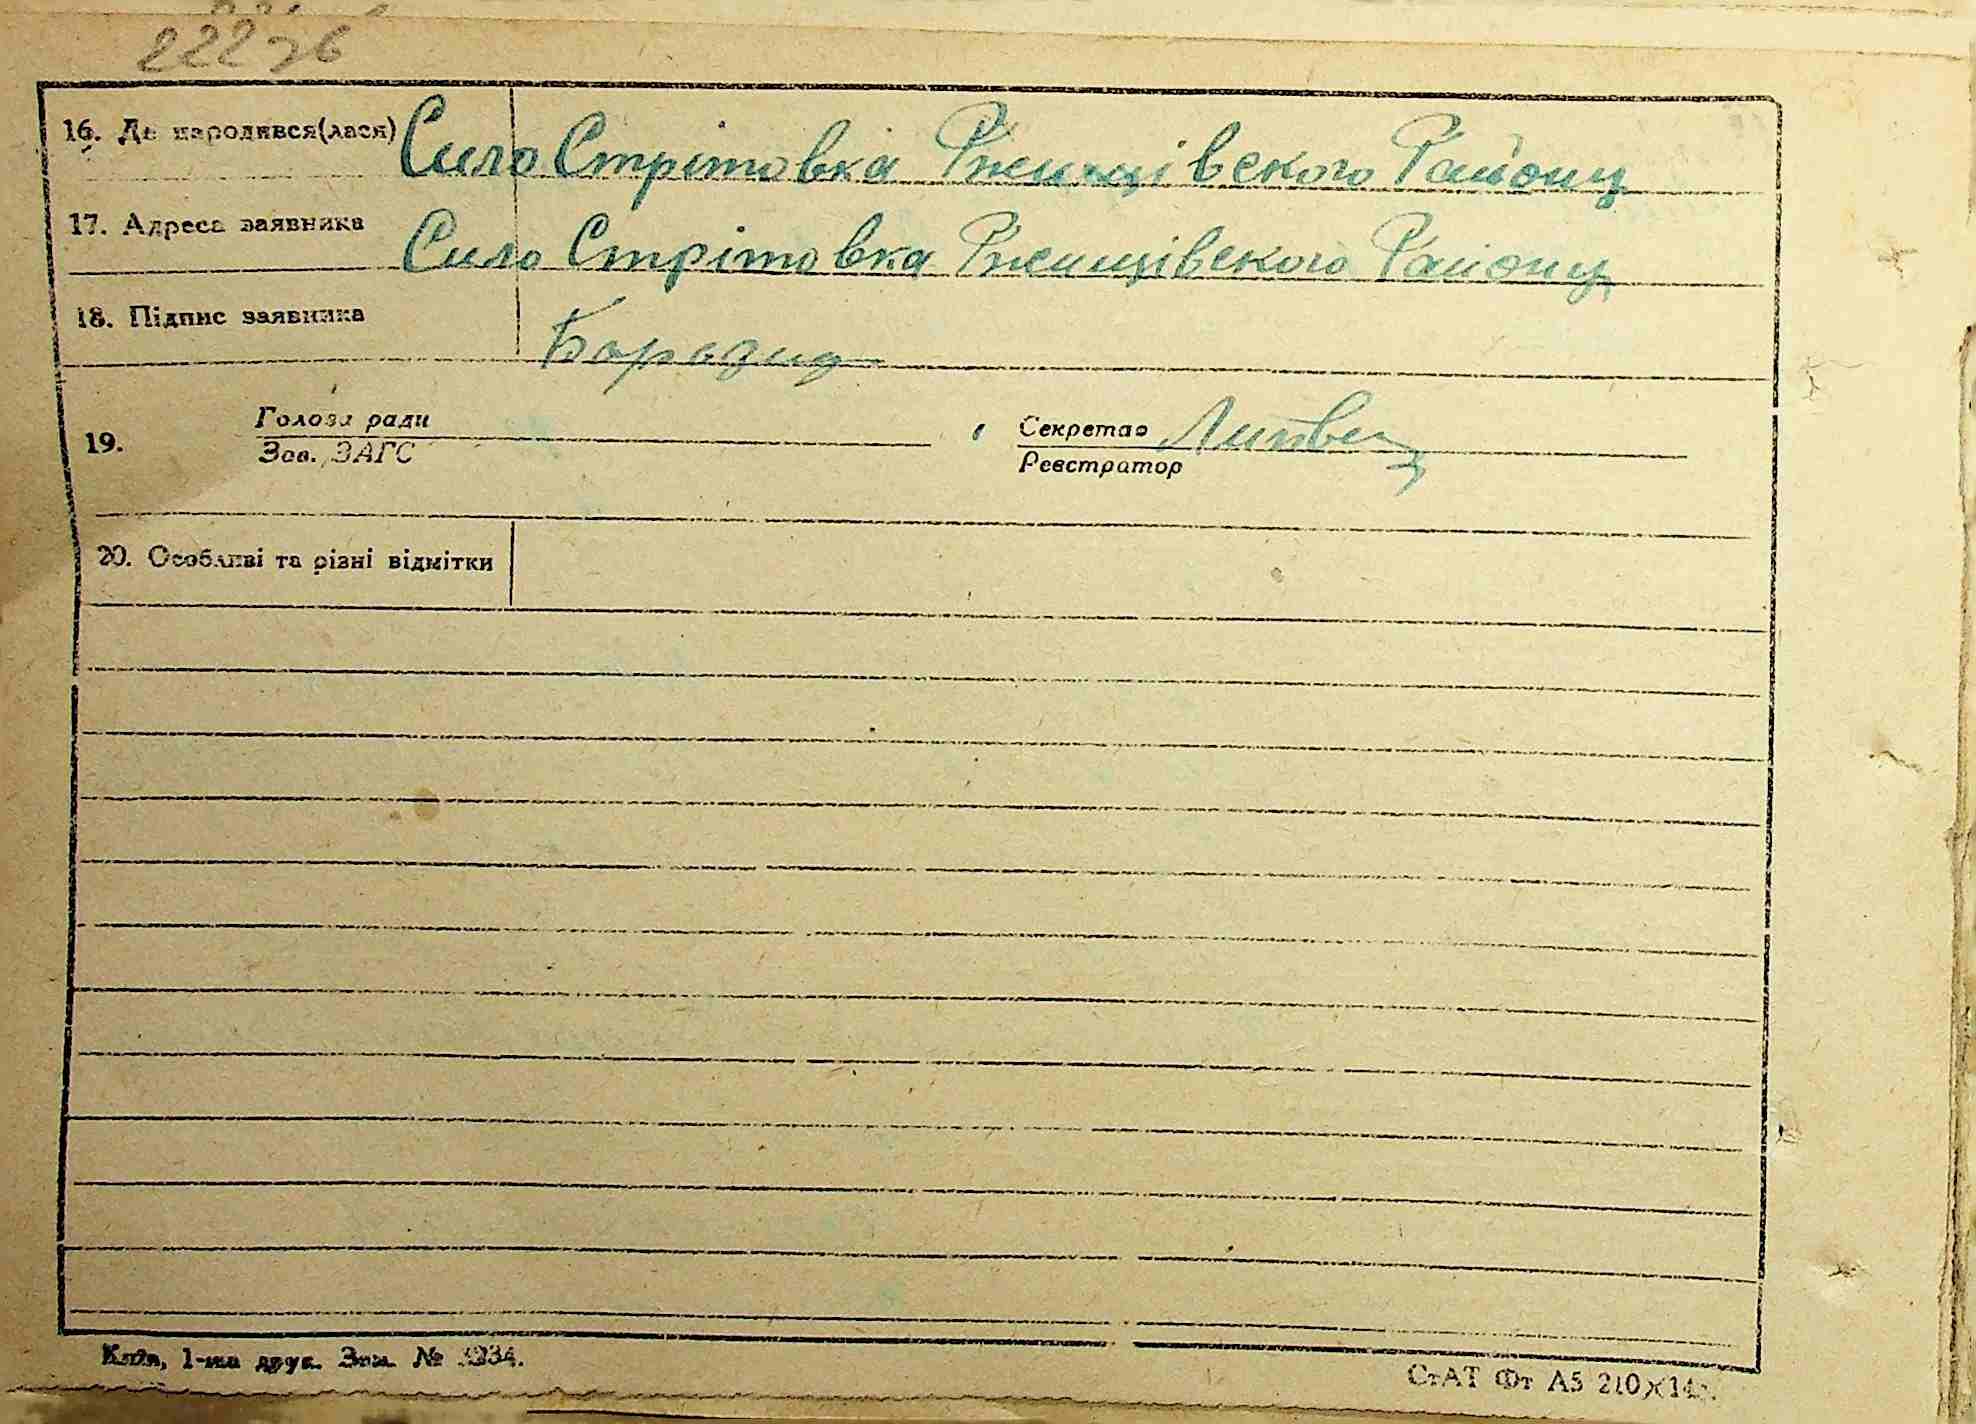 222зв
16. Де народився(лася) Сило Стрітовка Ржищівского Району
17. Адреса заявника Сило Стрітовка Ржищівского Району
18. Підпис заявника
19. Голова ради Секретар Литвец
Зав. ЗАГС Реєстратор
20. Особливі та різні відмітки
Київ, 1-ша друк. Зам. №
СтАТ Фт А5 210×14